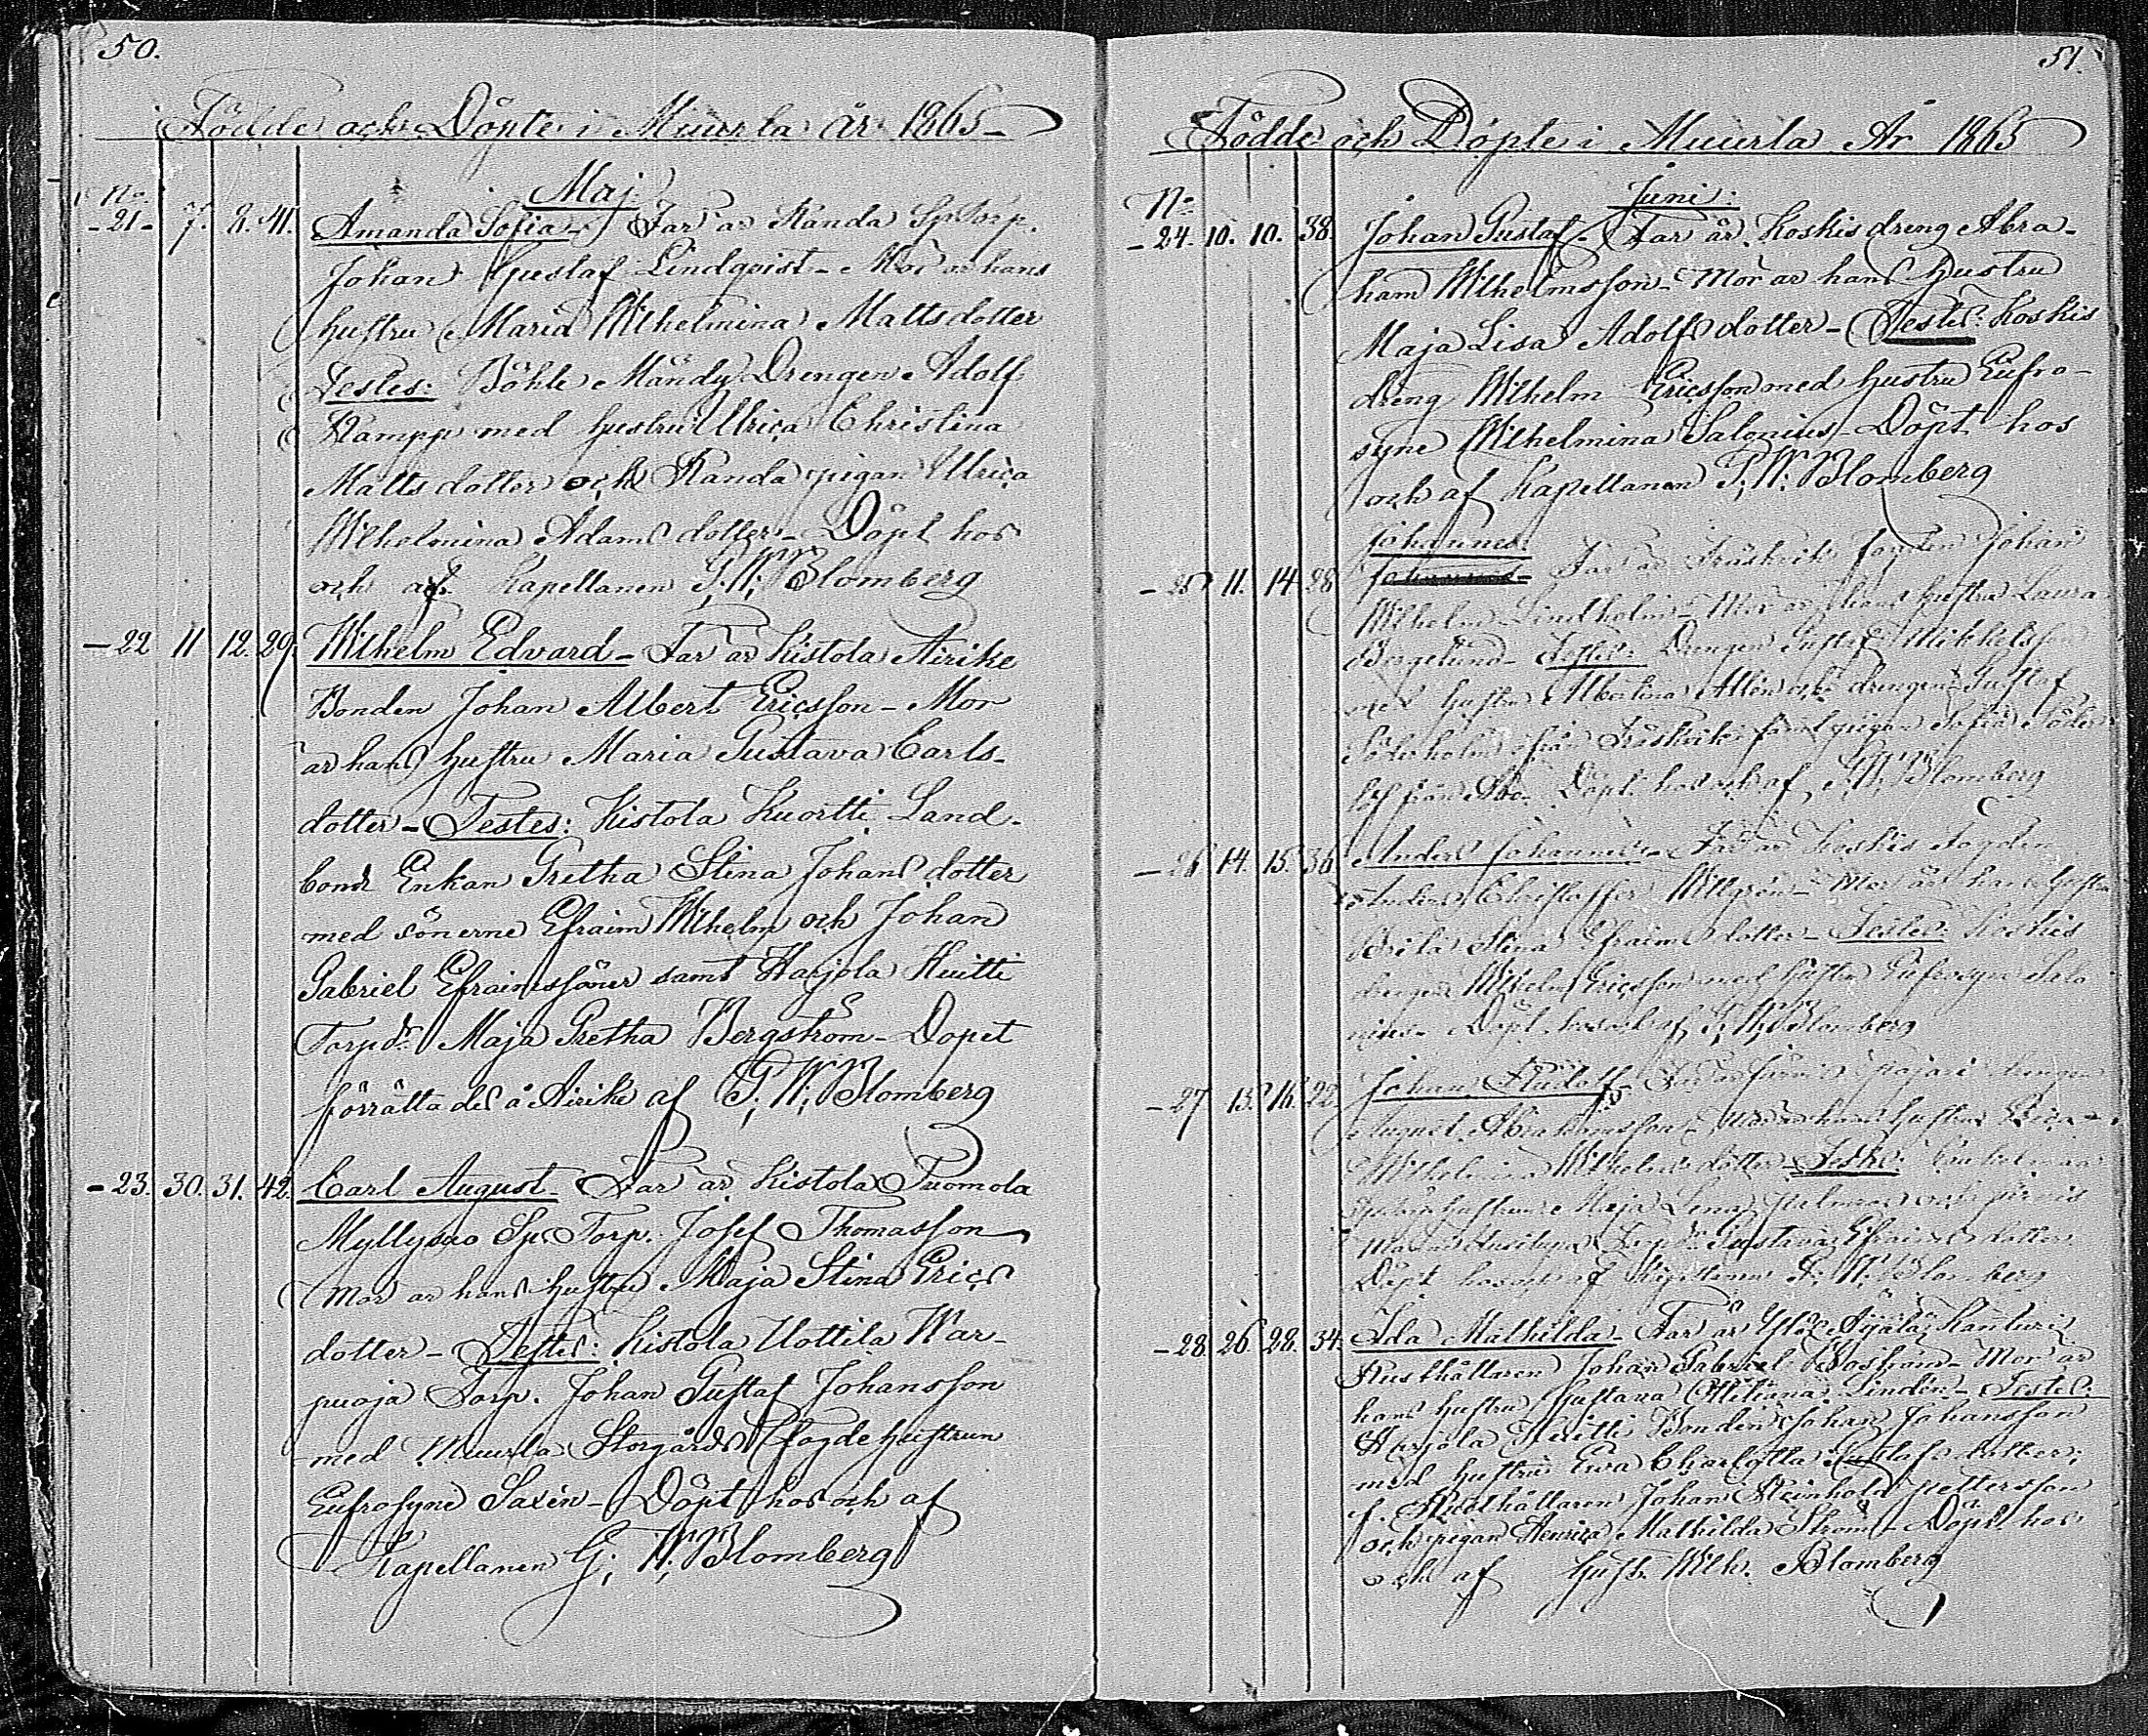 50.
Födde och Döpte i Muurla år 1865
Maj.
No
-21- 7. 8. 41. Amanda Sofia - Far är Randa Sp Torp.
Johan Gustaf Lindqvist - Mor är hans
hustru Maria Wilhelmina Mattsdotter
Testes: Böhle Mändy Drengen Adolf
Kampp med hustru Ulrica Christina
Mattsdotter och Randa pigan Ulrica
Wilhelmina Adamsdotter - Döpt hos
och af Kapellanen G. W. Blomberg
-22 11 12. 29. Wilhelm Edvard - Far är Kistola Äirike
Bonden Johan Albert Ericsson - Mor
är hans hustru Maria Gustava Carls-
dotter - Testes: Kistola Kuortti Land-
bond Enkan Gretha Stina Johansdotter
med sönerne Efraim Wilhelm och Johan
Gabriel Efraimssöner samt Harjola Huitti
Torpdr Maja Gretha Bergström - Dopet
förrättades å Äirike af G. W. Blomberg
-23. 30. 31. 42. Carl August - Far är Kistola Tuomola
Myllyoja Sp. Torp. Josef Thomasson
Mor är hans hustru Maja Stina Erics
dotter - Testes: Kistola Uottila War-
puoja Torp. Johan Gustaf Johansson
med Muurla Storgårds fogdehustrun
Eufrosyne Saxén - Döpt hos och af
Kapellanen G. W. Blomberg
51.
Födde och Döpte i Muurla År 1865
Juni:
No
-24. 10. 10. 38. Johan Gustaf - Far är Koskis dreng Abra-
ham Wilhelmsson - Mor är hans hustru
Maja Lisa Adolfsdotter - Testes: Koskis
dreng Wilhelm Ericsson med hustru Eufro-
syne Wilhelmina Salonius - Döpt hos
och af Kapellanen G. W. Blomberg
Johannes
-25 11. 14. 28 Far är Fräskvik fogden Johan
Wilhelm Lindholm - Mor är hans hustru Laura
Bergelund - Testes: Drengen Gustaf Mikkelsson
med hustru Albertina Allén och drengen Gustaf
Söderholm från Fräskvik samt pigan Sofia Söder-
löf från Åbo. Döpt hos och af G. W. Blomberg
-26 14. 15. 36 Anders Johannes - Far är Koskis fogden
Anders Christoffer Willgrén - Mor är hans hustru
Brita Stina Efraimsdotter - Testes: Koskis
drengen Wilhelm Ericsson med hustru Eufrosyne Salo
nius - Döpt hos och af G. W. Blomberg
-27 15. 16. 22 Johan Rudolf - Far är Järvis Pajari drengen
August Abrahamsson - Mor är hans hustru Erica
Wilhelmina Wilhelmsdotter - Testes:
hustrun Maja Lena och Järvis
Torpdr Gustava Efraimsdotter
Döpt hos och af Kapellanen G. W. Blomberg
-28 26. 28. 34. Ida Mathilda - Far är Ylö Äijälä Kanturi
Rusthållaren Johan Gabriel - Mor är
hans hustru Gustava Lindén - Testes:
Harjola Huitti Bonden Johan Johansson
med hustru Eva Charlotta Gustafsdotter;
f. Rusthållaren Johan Reinhold Pettersson
och pigan Henrica Mathilda Ström - Döpt hos
och af Gust. Wilh. Blomberg